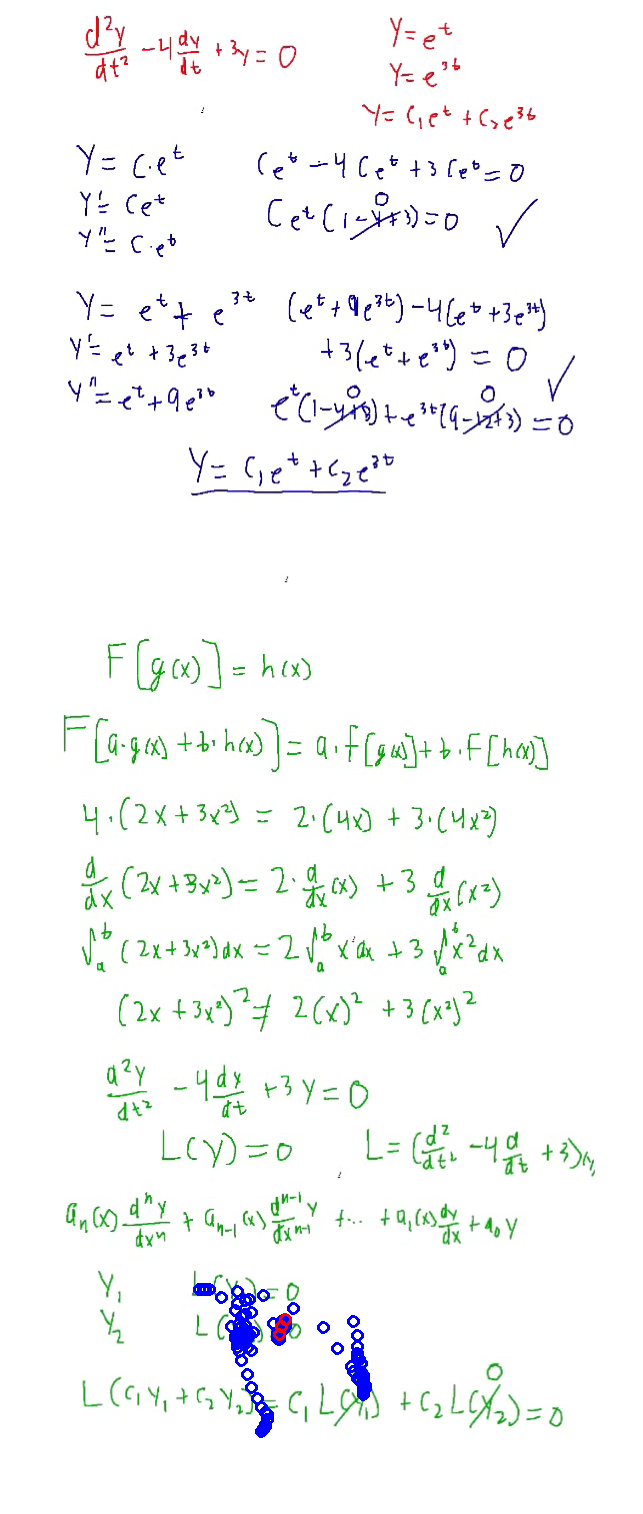 d²y/dt² - 4 dy/dt + 3y = 0
Y = e^t
Y = e^3t
Y = C₁e^t + C₂e^3t
Y = C·e^t
Y' = Ce^t
Y'' = C·e^t
Ce^t - 4Ce^t + 3Ce^t = 0
0
Ce^t(1-4+3) = 0 ✓
Y = e^t + e^3t
Y' = e^t + 3e^3t
Y'' = e^t + 9e^3t
(e^t + 9e^3t) - 4(e^t + 3e^3t)
+3(e^t + e^3t) = 0 ✓
0 0
e^t(1-4+3) + e^3t(9-12+3) = 0
Y = C₁e^t + C₂e^3t
F[g(x)] = h(x)
F[a·g(x) + b·h(x)] = a·F[g(x)] + b·F[h(x)]
4·(2x + 3x²) = 2·(4x) + 3·(4x²)
d/dx (2x + 3x²) = 2·d/dx(x) + 3 d/dx(x²)
∫_a^b (2x+3x²)dx = 2∫_a^b x dx + 3∫_a^b x² dx
(2x + 3x²)² ≠ 2(x)² + 3(x²)²
d²y/dt² - 4 dy/dt + 3y = 0
L(y) = 0
L = (d²/dt² - 4 d/dt + 3)
a_n(x) d^n y/dx^n + a_{n-1}(x) d^{n-1}y/dx^{n-1} + ... + a₁(x) dy/dx + a₀ y
Y₁ = 0
Y₂ L( 0
0
L(C₁Y₁ + C₂Y₂) = C₁L(Y₁) + C₂L(Y₂) = 0